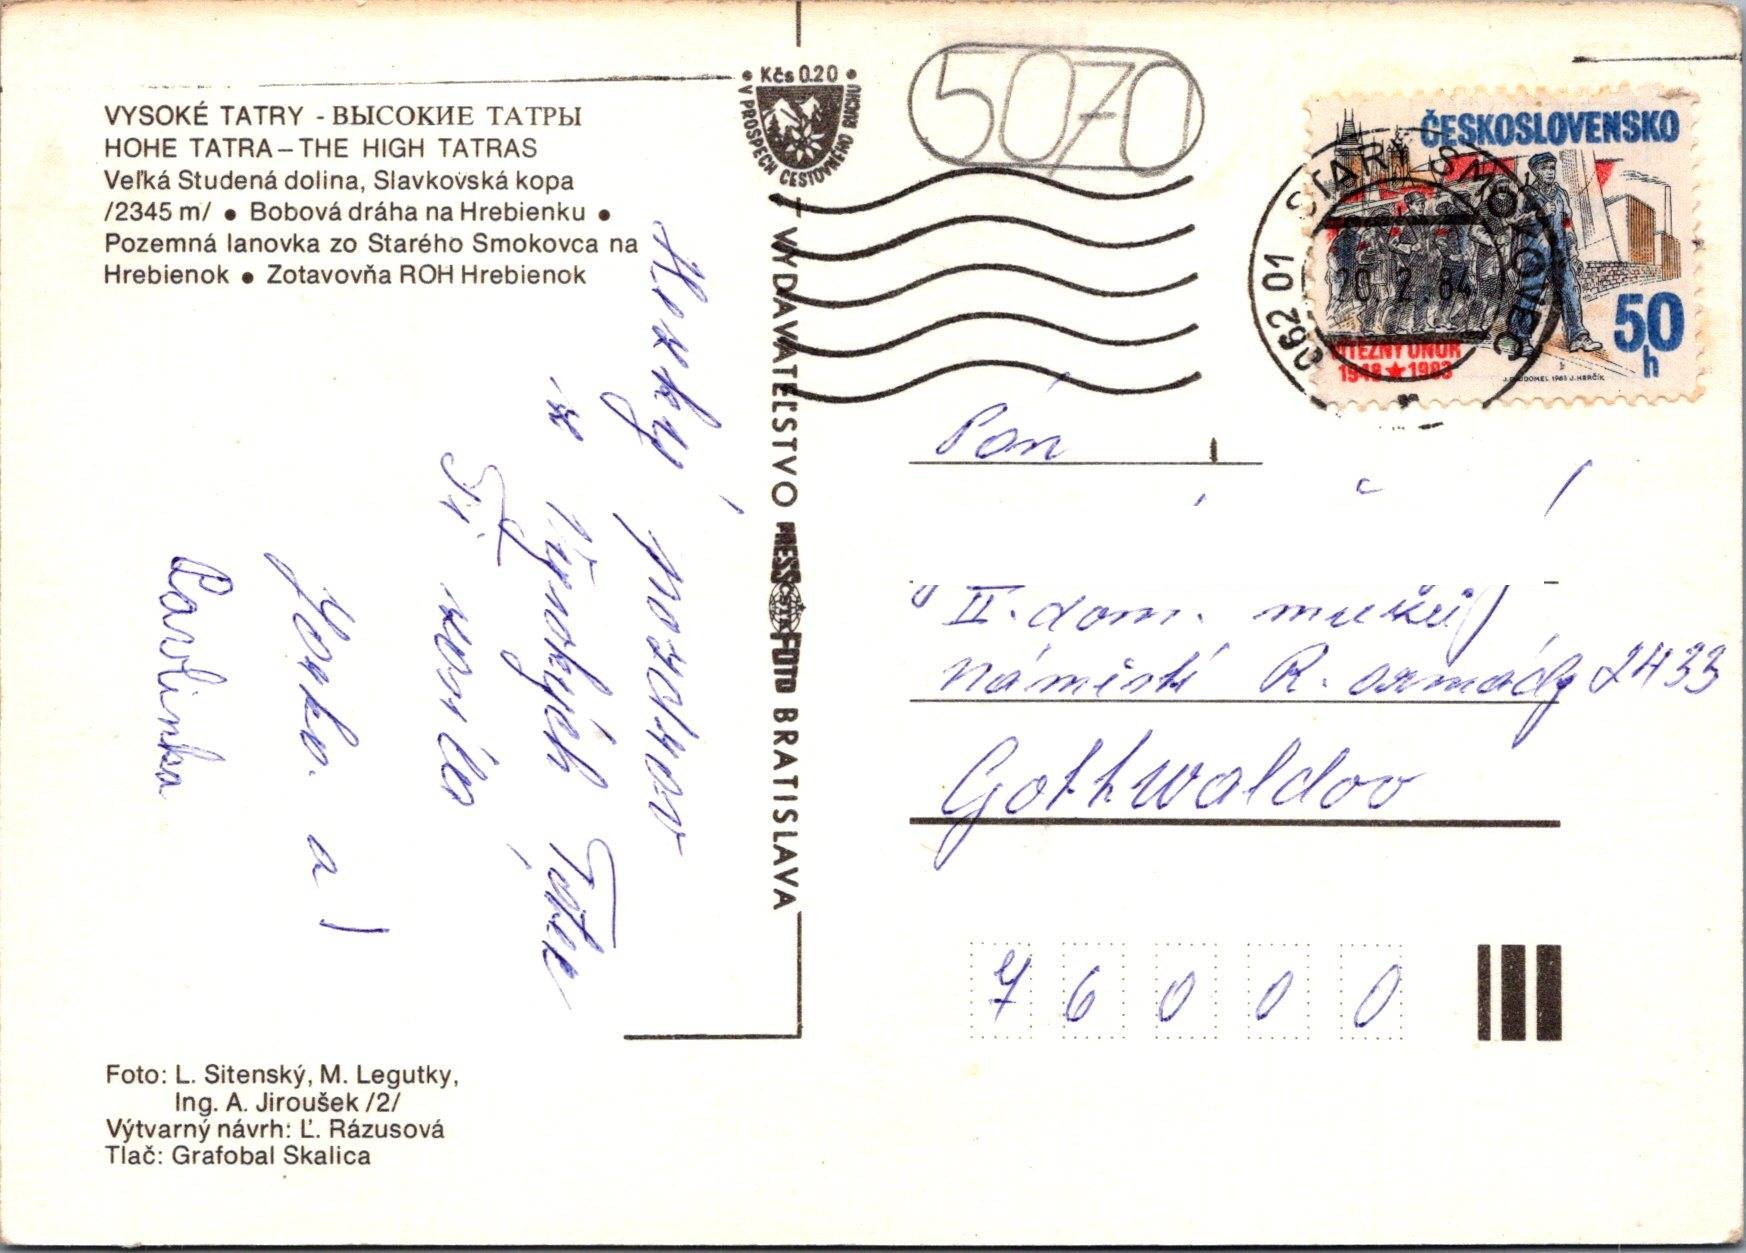 VYSOKÉ TATRY - ВЫСОКИЕ ТАТРЫ
HOHE TATRA – THE HIGH TATRAS
Veľká Studená dolina, Slavkovská kopa
/2345 m/ ● Bobová dráha na Hrebienku ●
Pozemná lanovka zo Starého Smokovca na
Hrebienok ● Zotavovňa ROH Hrebienok
Hezký pozdrav
z Vysokých Tater
Ti
Jarka a
Pavlinka
Foto: L. Sitenský, M. Legutky,
Ing. A. Jiroušek /2/
Výtvarný návrh: Ľ. Rázusová
Tlač: Grafobal Skalica
• Kčs 0.20 •
V PROSPECH CESTOVNÉHO RUCHU
VYDAVATEĽSTVO PRESSFOTO BRATISLAVA
ČSTK
5070
ČESKOSLOVENSKO
50
h
VÍTĚZNÝ ÚNOR
1948 ★ 1983
062 01 STARÝ SMOKOVEC
20. 2. 84
Pán
II. dom. mužů
Náměstí R. armády 2433
Gottwaldov
76000